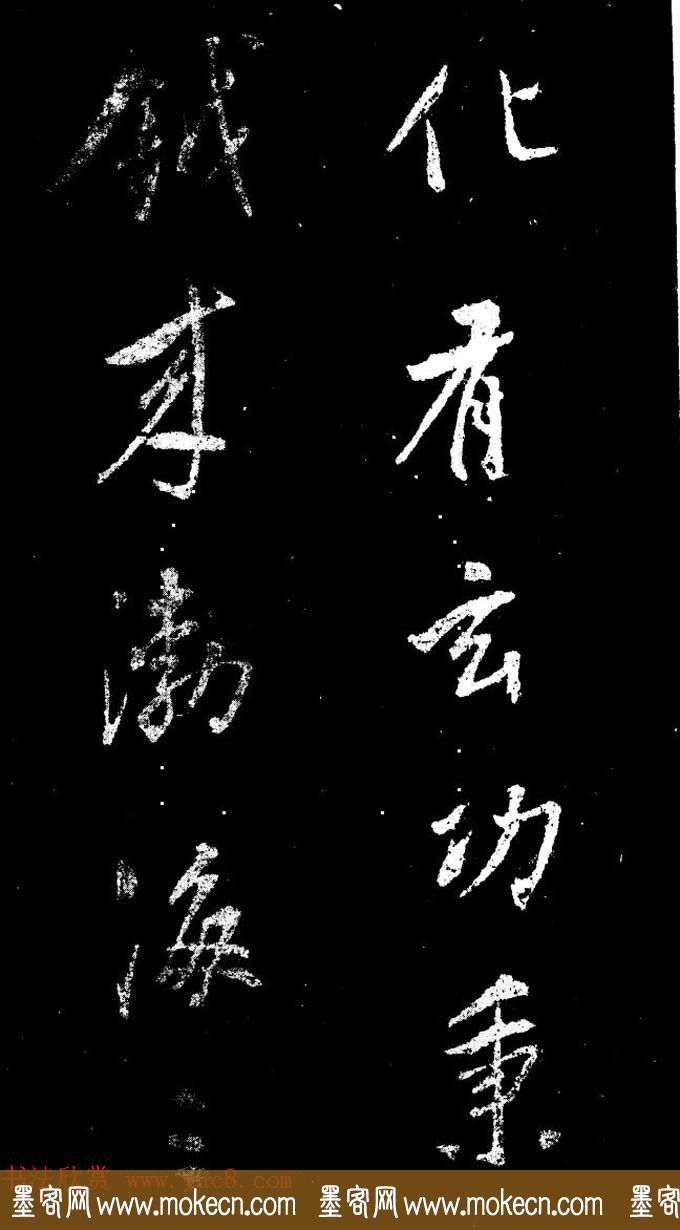 化有玄功秉
鉞渤海
书法欣赏 www.yac8.com
墨客网 www.mokecn.com 墨客网 www.mokecn.com 墨客